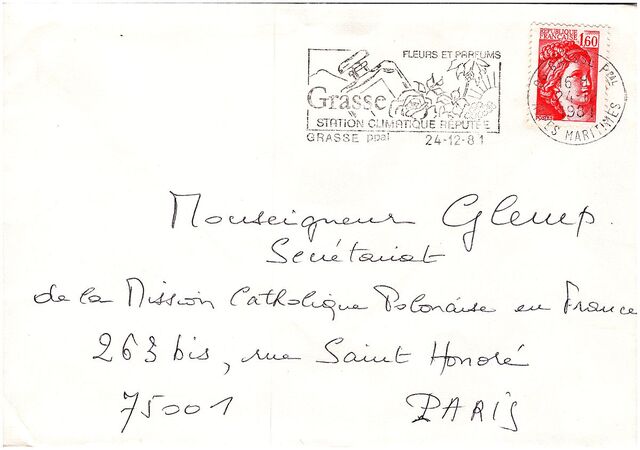 FLEURS ET PARFUMS
Grasse
STATION CLIMATIQUE RÉPUTÉE
GRASSE ppal 24-12-81
REPUBLIQUE
FRANÇAISE 1,60
Ppal
ES MARITIMES
Monseigneur Glemp.
Secrétariat
de la Mission Catholique Polonaise en France
263 bis, rue Saint Honoré
75001 PARIS